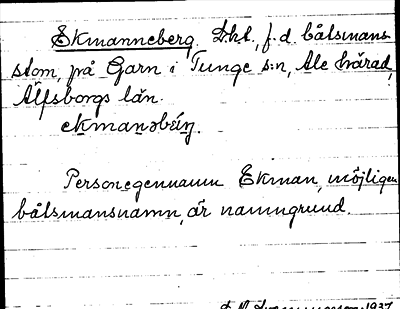 Ekmanneberg. Lht, f.d. båtsmans-
stom, på Garn i Tunge s:n, Ale härad,
Älfsborgs län.
ekmanəbárj.
Personegennamn Ekman, möjligen
båtsmansnamn, är namngrund.
1937